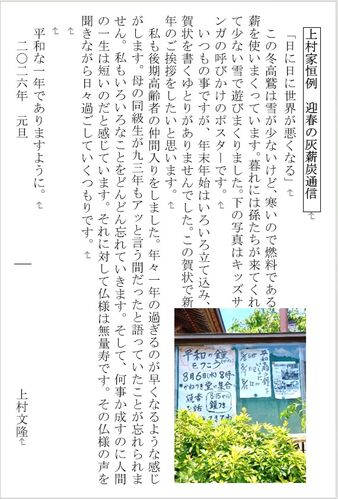 上村家恒例　迎春の灰薪炭通信
「日に日に世界が悪くなる」
この冬高鷲は雪が少ないけど、寒いので燃料である
薪を使いまくっています。暮れには孫たちが来てくれ
て少ない雪で遊びまくりました。下の写真はキッズサ
ンガの呼びかけのポスターです。
いつもの事ですが、年末年始はいろいろ立て込み、
賀状を書くゆとりがありませんでした。この賀状で新
年のご挨拶をしたいと思います。
私も後期高齢者の仲間入りをしました。年々一年の過ぎるのが早くなるような感じ
がします。母の同級生が九三年もアッと言う間だったと語っていたことが忘れられま
せん。私もいろいろなことをどんどん忘れていきます。そして、何事か成すのに人間
の一生は短いのだと感じています。それに対して仏様は無量寿です。その仏様の声を
聞きながら日々過ごしていくつもりです。
平和な一年でありますように。
二〇二六年　元旦
上村文隆
平和の鐘
をつこう
8月6日(水) 8時
集合